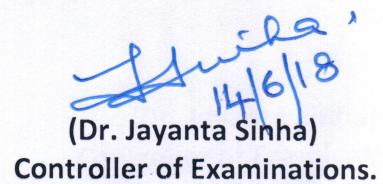 J Sinha
14/6/18
(Dr. Jayanta Sinha)
Controller of Examinations.